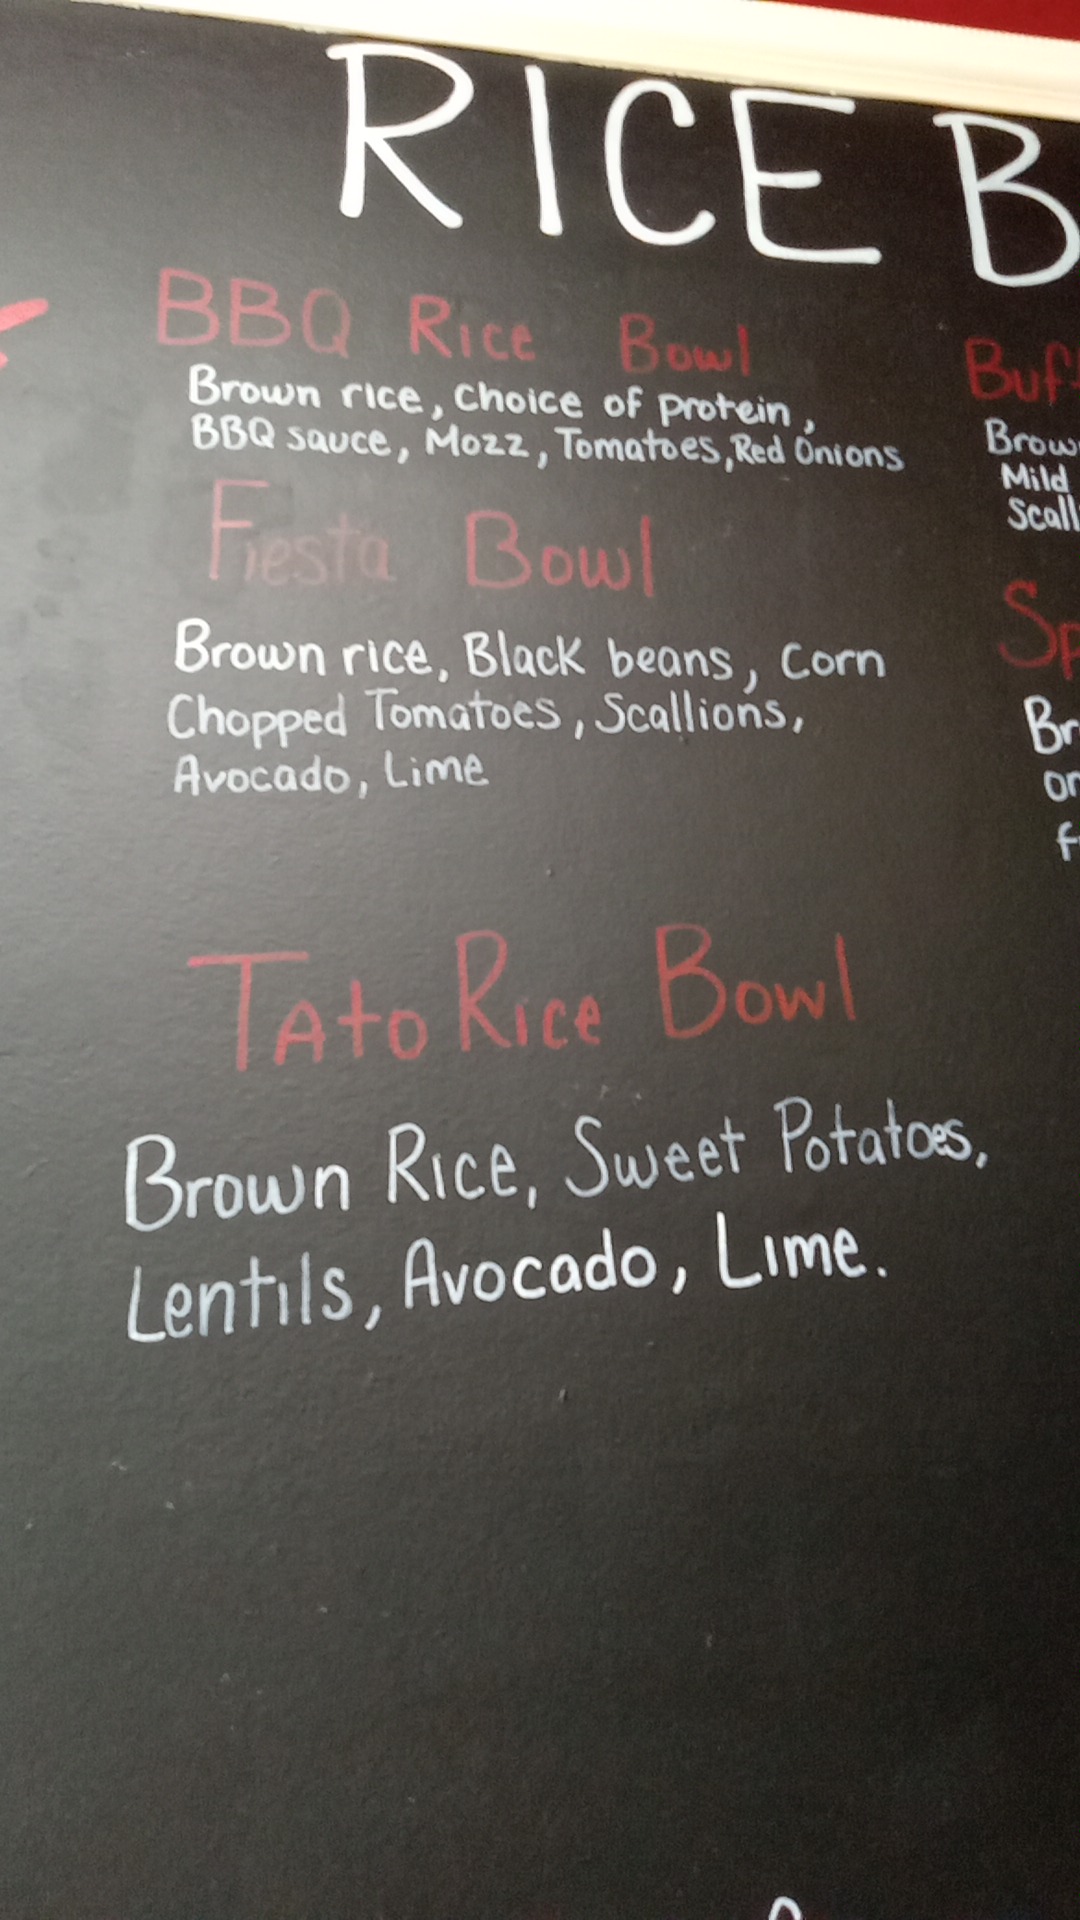 RICE B
BBQ Rice Bowl
Brown rice, Choice of protein,
BBQ sauce, Mozz, Tomatoes, Red Onions
Fiesta Bowl
Brown rice, Black beans, Corn
Chopped Tomatoes, Scallions,
Avocado, Lime
TAto Rice Bowl
Brown Rice, Sweet Potatoes,
Lentils, Avocado, Lime.
Buf
Brow
Mild
Scall
Sp
Br
or
f